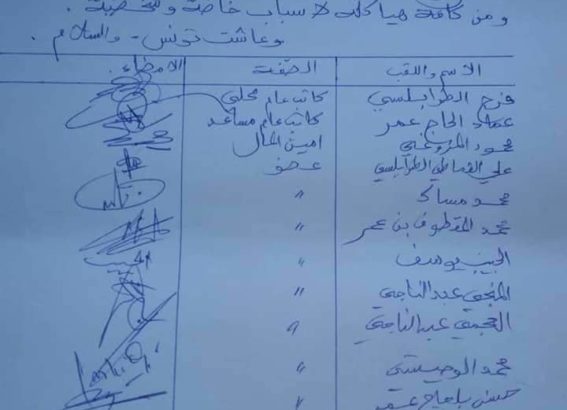 ومن كافة هياكله لأسباب خاصة وشخصية.
وعاشت تونس - والسلام.
الاسم واللقب الصفة الامضاء
فرج الطرابلسي كاتب عام محلي
عماد الحاج عمر كاتب عام مساعد
محمود المزوغي امين المال
علي الطرابلسي عضو
محمد مساك "
محمد المقطوف بن عمر "
الحبيب يوسف "
المنجي عبد الناجي "
العجمي عبد الناجي "
محمد الوحيشي "
حسن "